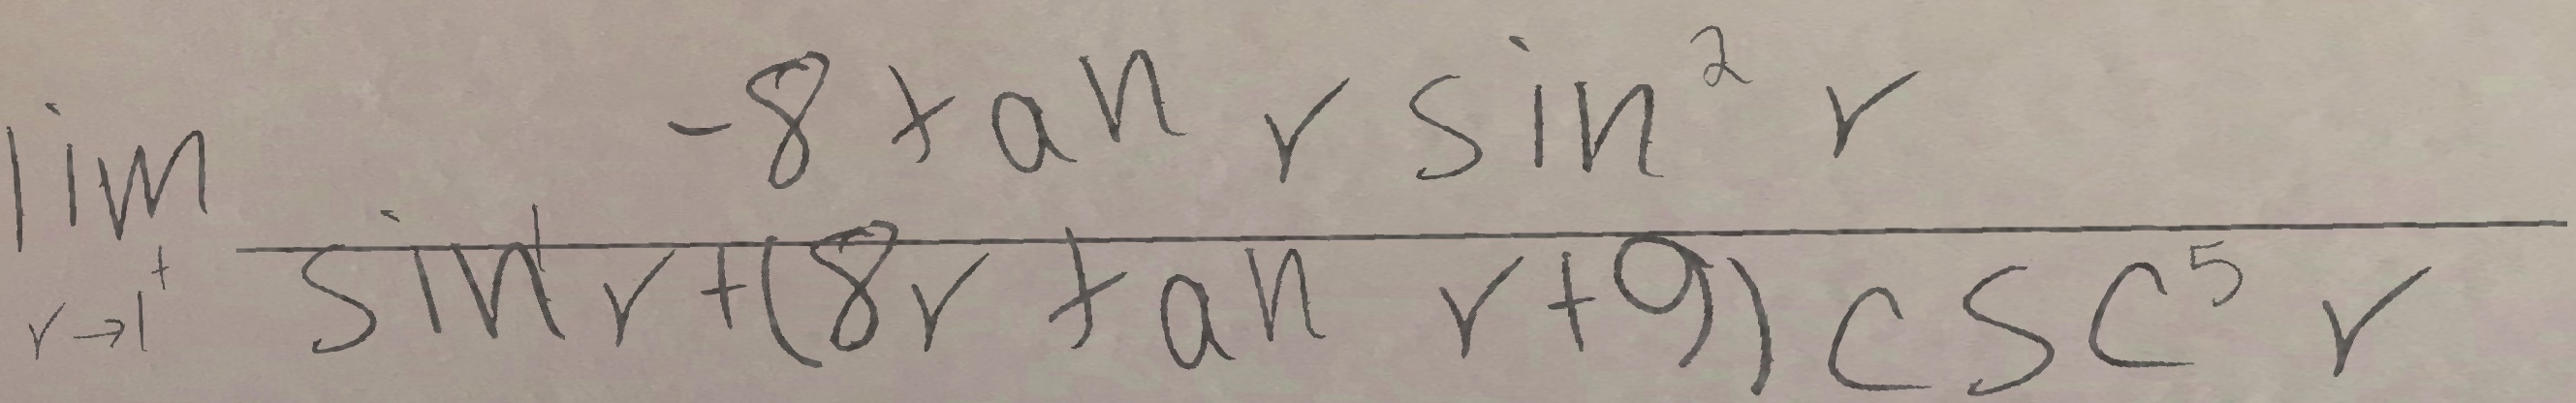 \lim_{r \to 1^+} \frac{-8 \tan r \sin^2 r}{\sin^1 r + (8r \tan r + 9) \csc^5 r}